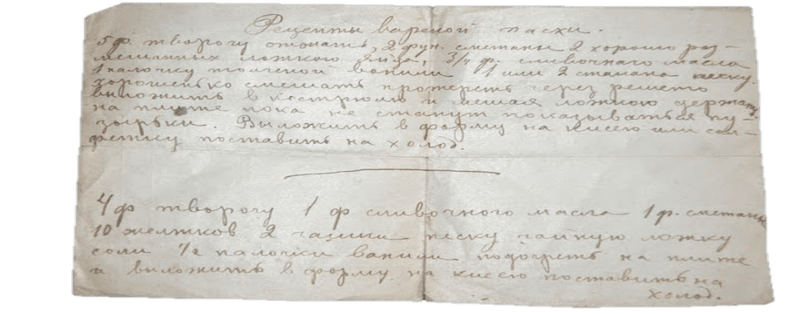 Рецепты вареной пасхи.
5 ф. творогу отжать, 2 фун. сметаны 2 хорошо раз-
мешанных ложкою яйца, 3/4 ф. сливочного масла
1 палочку толченой ванили 1 или 2 стакана песку.
хорошенько смешать протереть через решето
выложить в кастрюлю и мешая ложкою держать
на плите пока не станут показываться пу-
зырьки. Выложить в форму на кисею или сал-
фетку поставить на холод.
4 ф творогу 1 ф сливочного масла 1 ф. сметаны
10 желтков 2 песку чайную ложку
соли 1/2 палочки ванили подогреть на плите
и выложить в форму на кисею поставить на
холод.